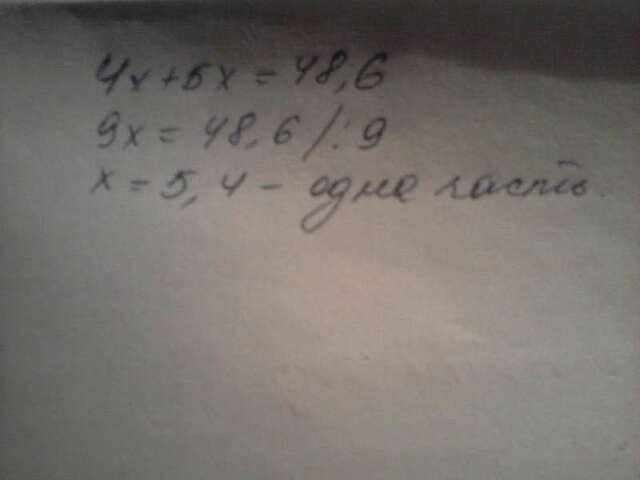 4x+5x=48,6
9x=48,6/:9
x=5,4- одна часть.